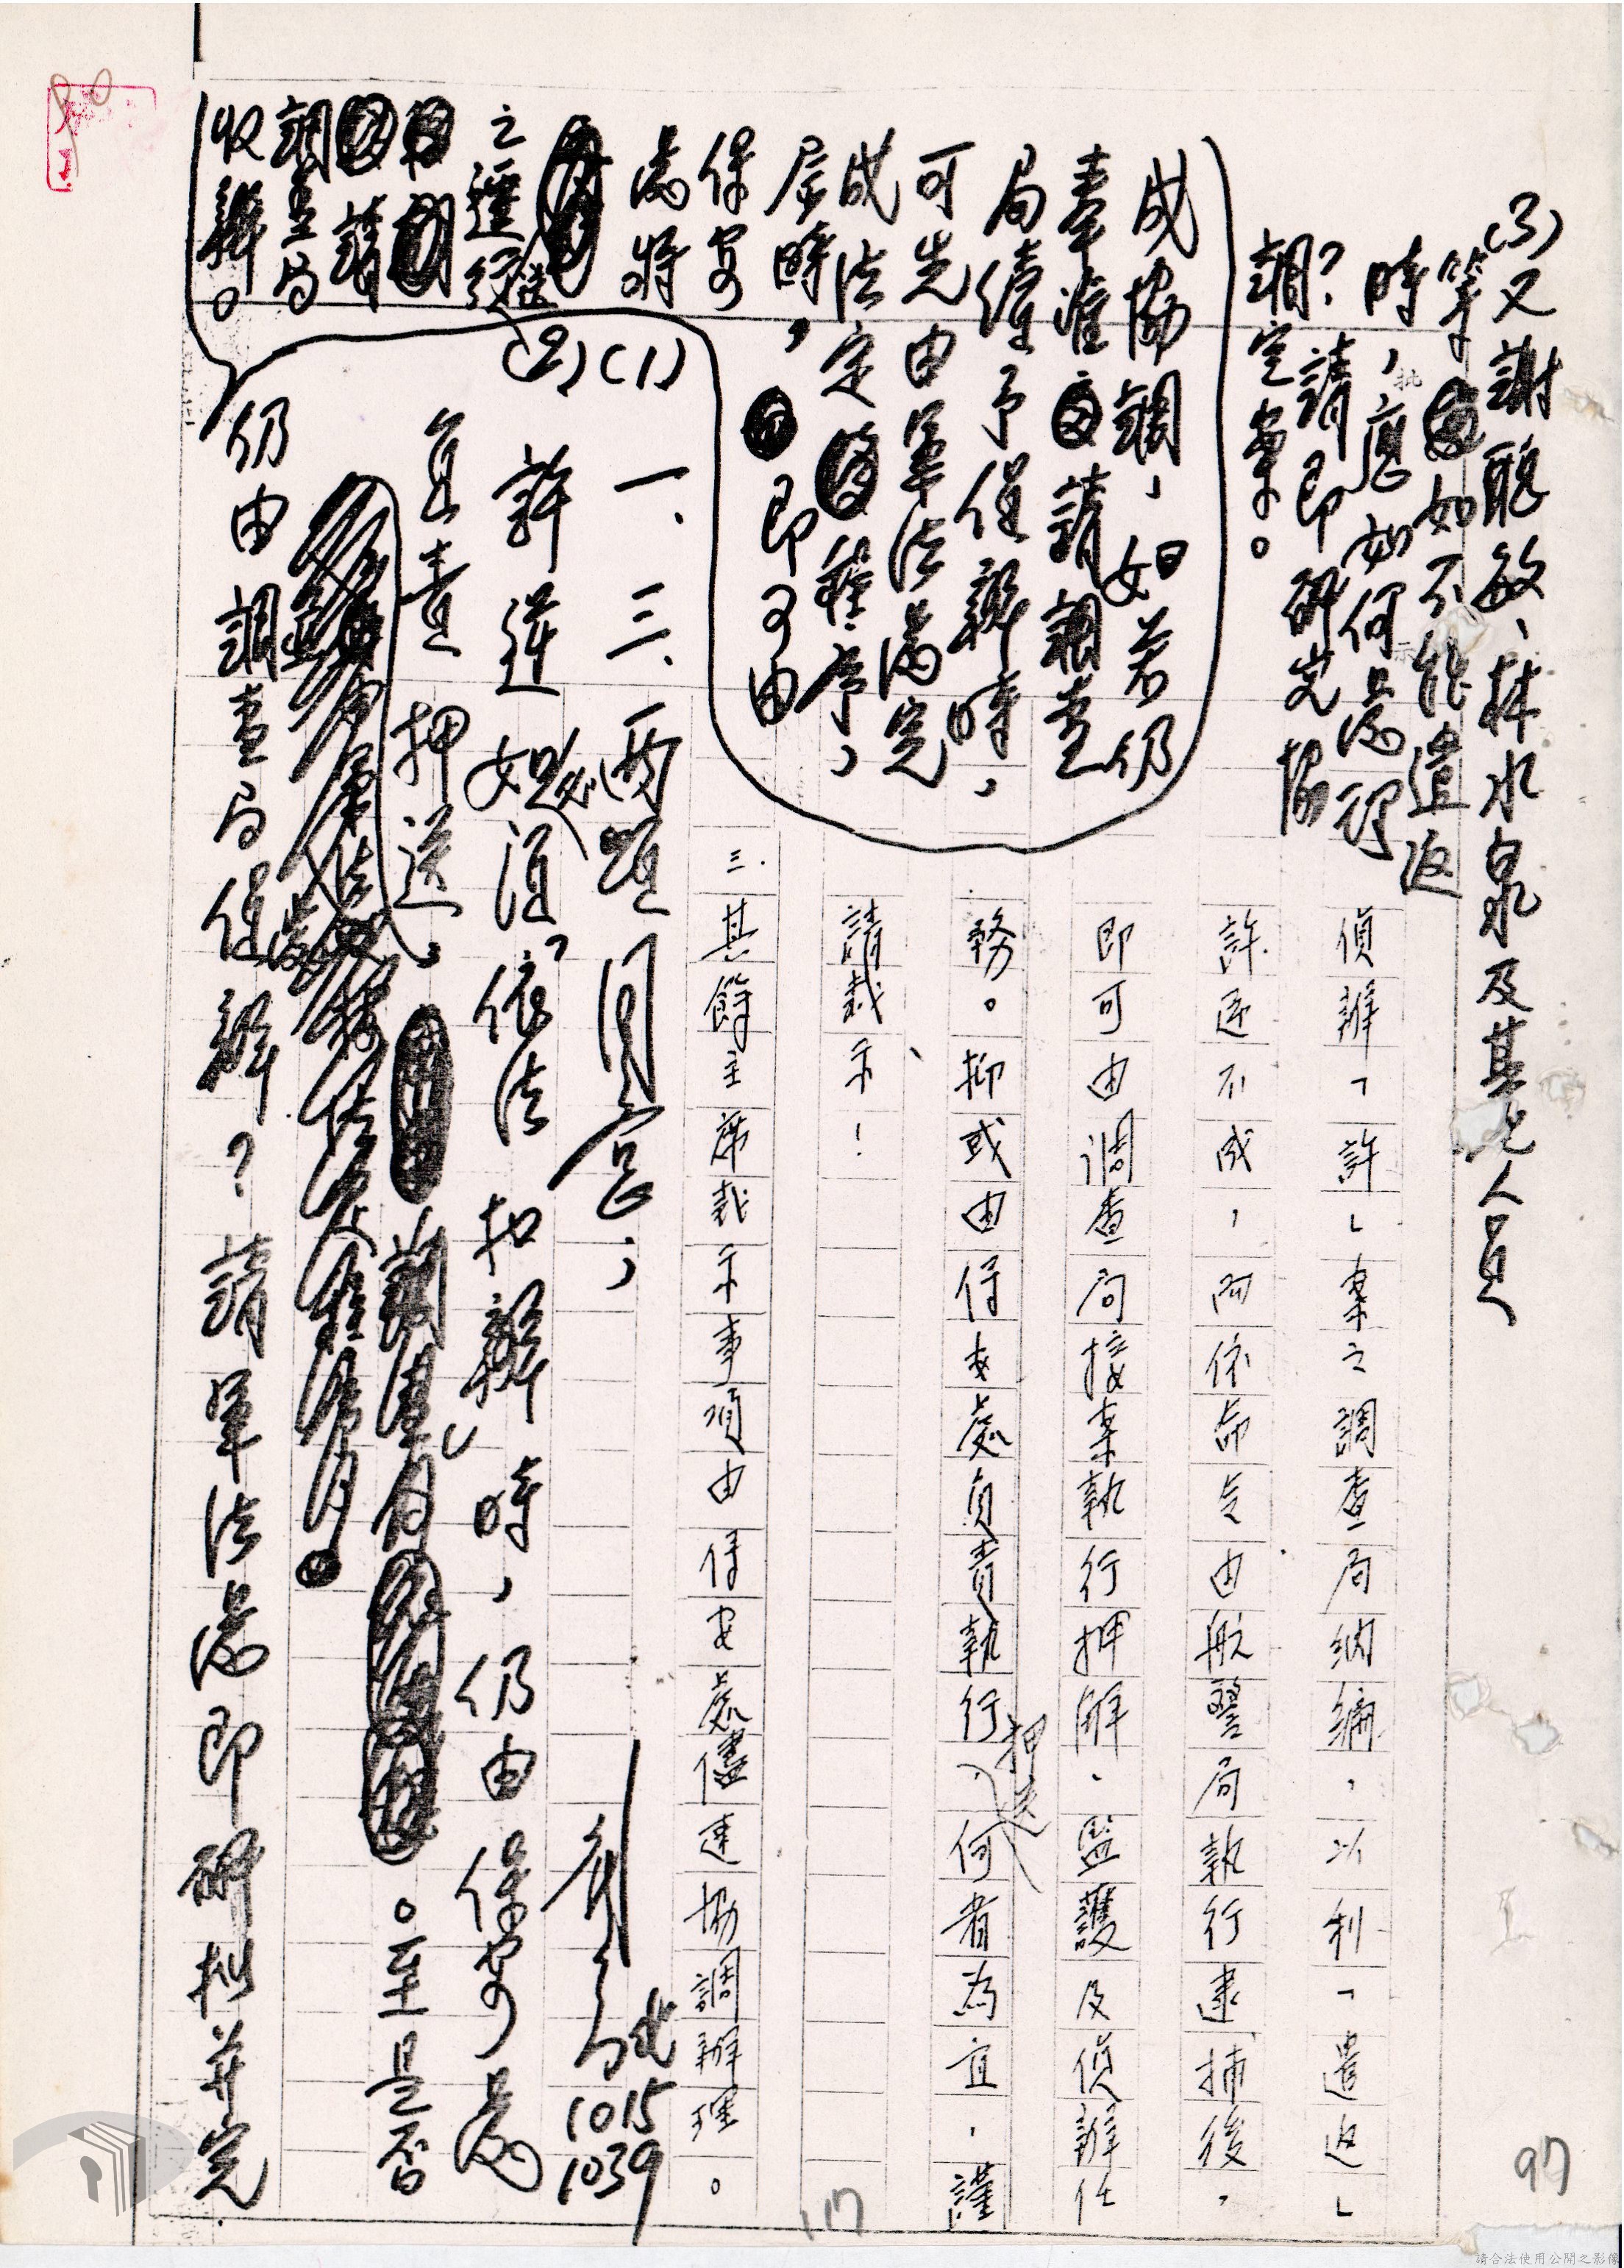 偵辦「許」案之調查局納編，以利「遣返」
許逆不成，而依命令由航警局執行逮捕後，
即可由調查局接案執行押解、監護及偵辦任
務。抑或由保安處負責執行，何者為宜，謹
押送
請裁示！
三.其餘主席裁示事項由保安處儘速協調辦理。
一、三、兩項同意；
1015
1039
許逆如須依法扣辦時，仍由保安處
負責押送，
。至是否
仍由調查局偵辦？請軍法處即研拟并完
(1)
(2)
成協調，如若仍
奉准請調查
局續予偵辦時，
可先由軍法處完
成法定程序，
屆時，即可由
保安
處將
之逕行送
請
調查局
收辦。
(3)又謝聰敏、林水泉及其他人員
等如不能遣返
時，應如何處理
？請即研究協
調定案。
97
117
90
請合法使用公開之影像